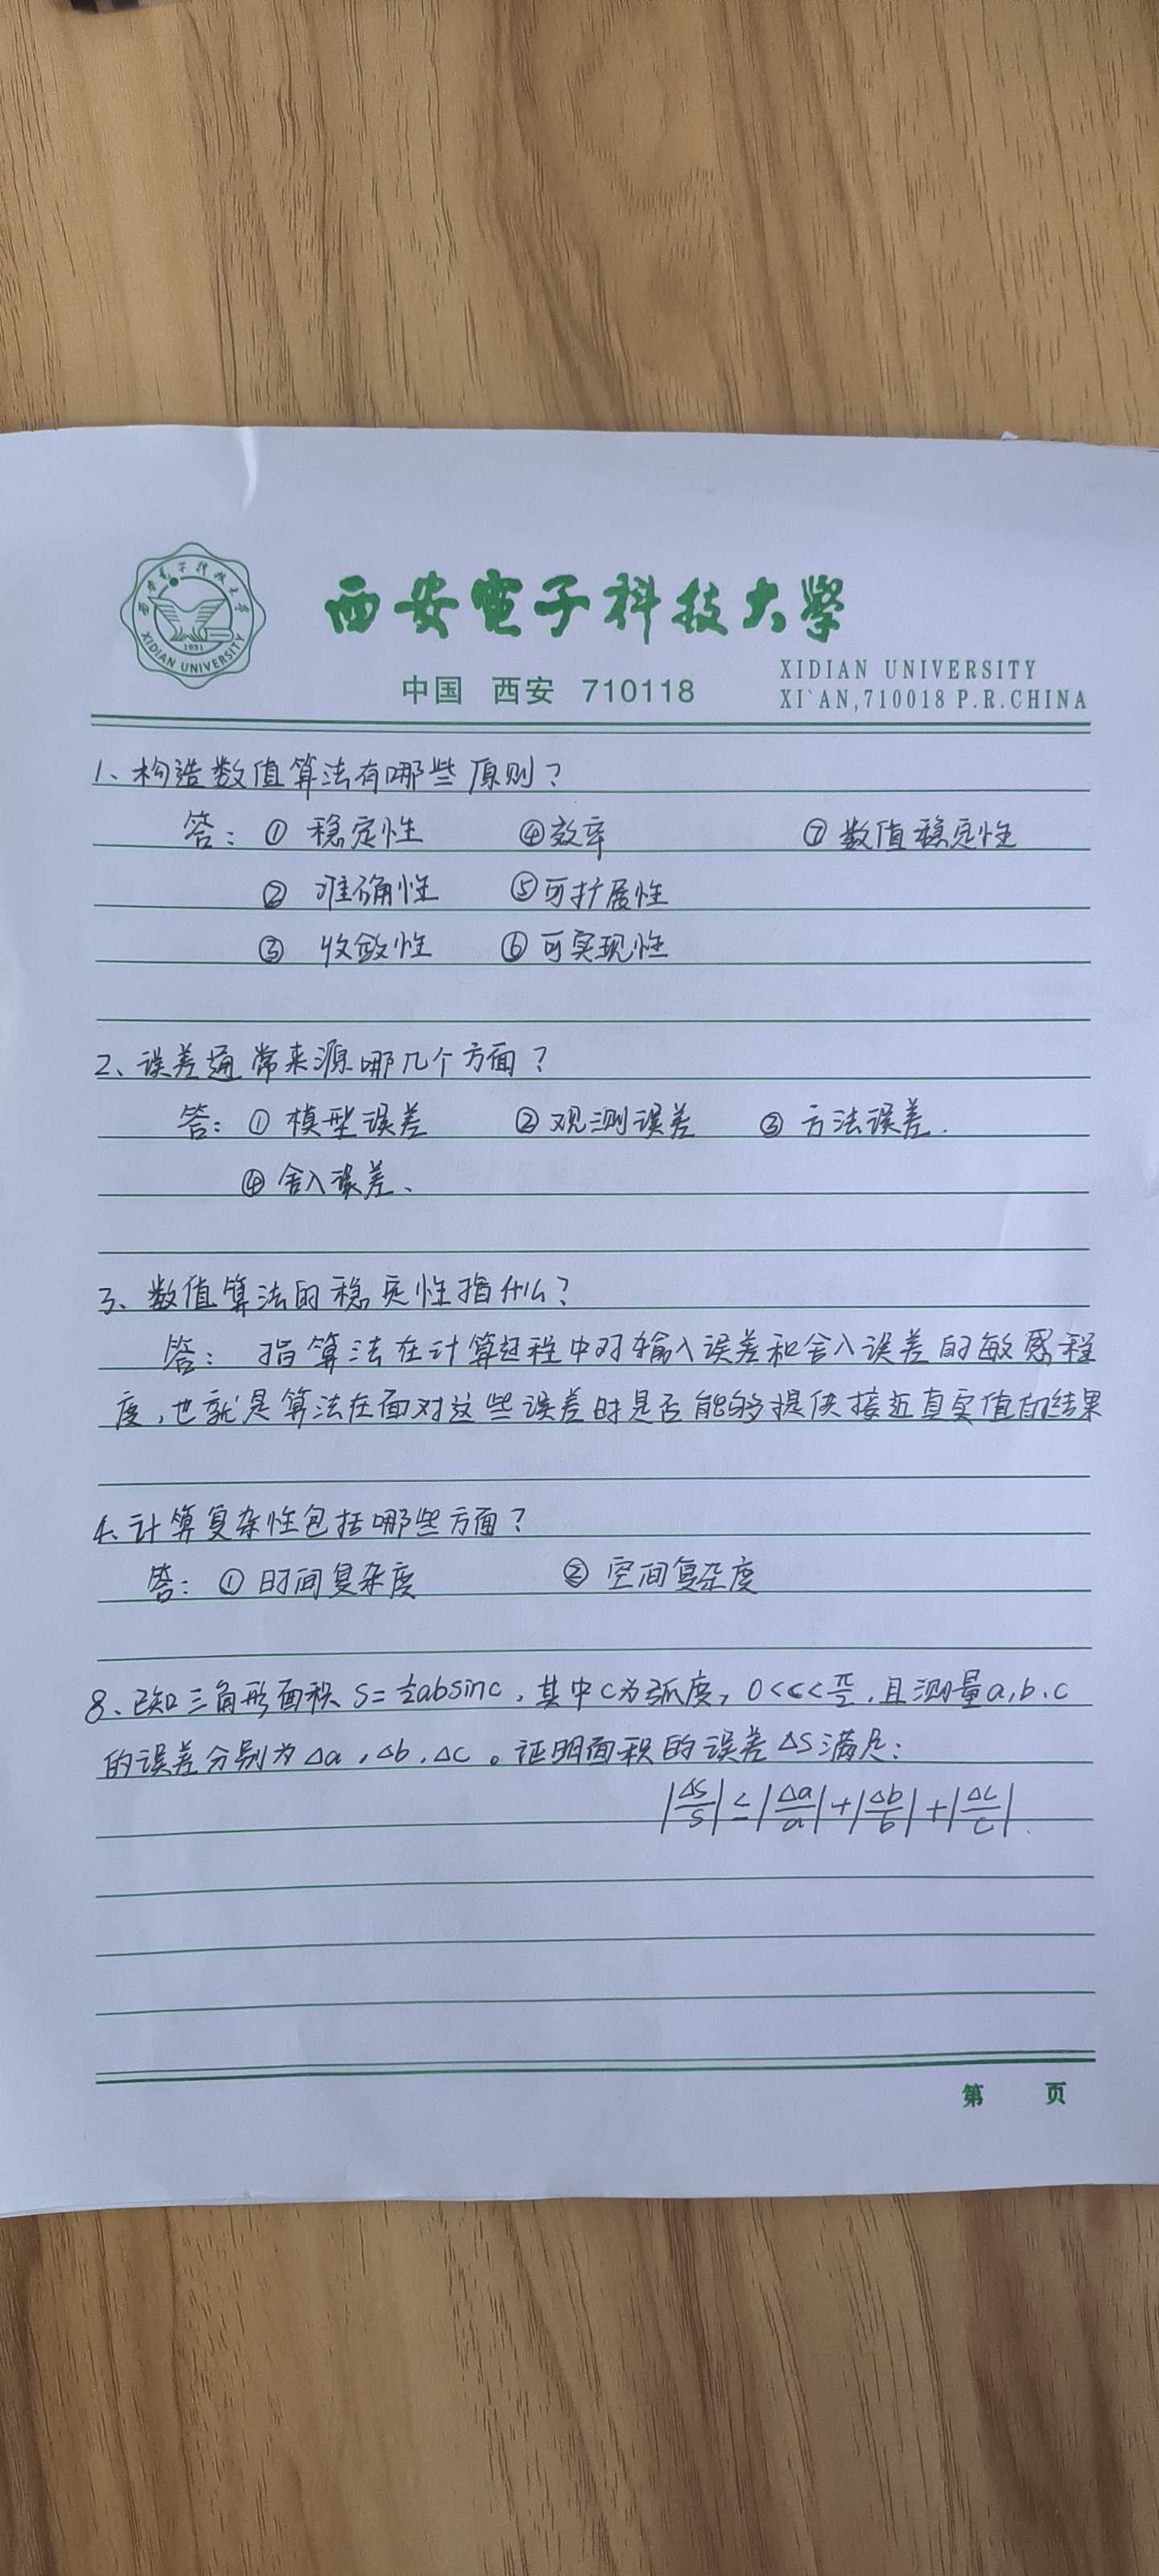 西安電子科技大學
XIDIAN UNIVERSITY
1931
西安電子科技大學
中国 西安 710118
XIDIAN UNIVERSITY
XI`AN,710018 P.R.CHINA
1、构造数值算法有哪些原则?
答: ① 稳定性 ④效率 ⑦数值稳定性
② 准确性 ⑤可扩展性
③ 收敛性 ⑥可实现性
2、误差通常来源哪几个方面?
答: ①模型误差 ②观测误差 ③方法误差.
④舍入误差、
3、数值算法的稳定性指什么?
答: 指算法在计算过程中对输入误差和舍入误差的敏感程
度,也就是算法在面对这些误差时是否能够提供接近真实值的结果
4、计算复杂性包括哪些方面?
答: ①时间复杂度 ②空间复杂度
8、已知三角形面积 S=½absinc,其中c为弧度,0<c<π/2,且测量a,b、c
的误差分别为Δa,Δb、Δc。证明面积的误差ΔS满足:
|ΔS/S|≤|Δa/a|+|Δb/b|+|Δc/c|.
第 页